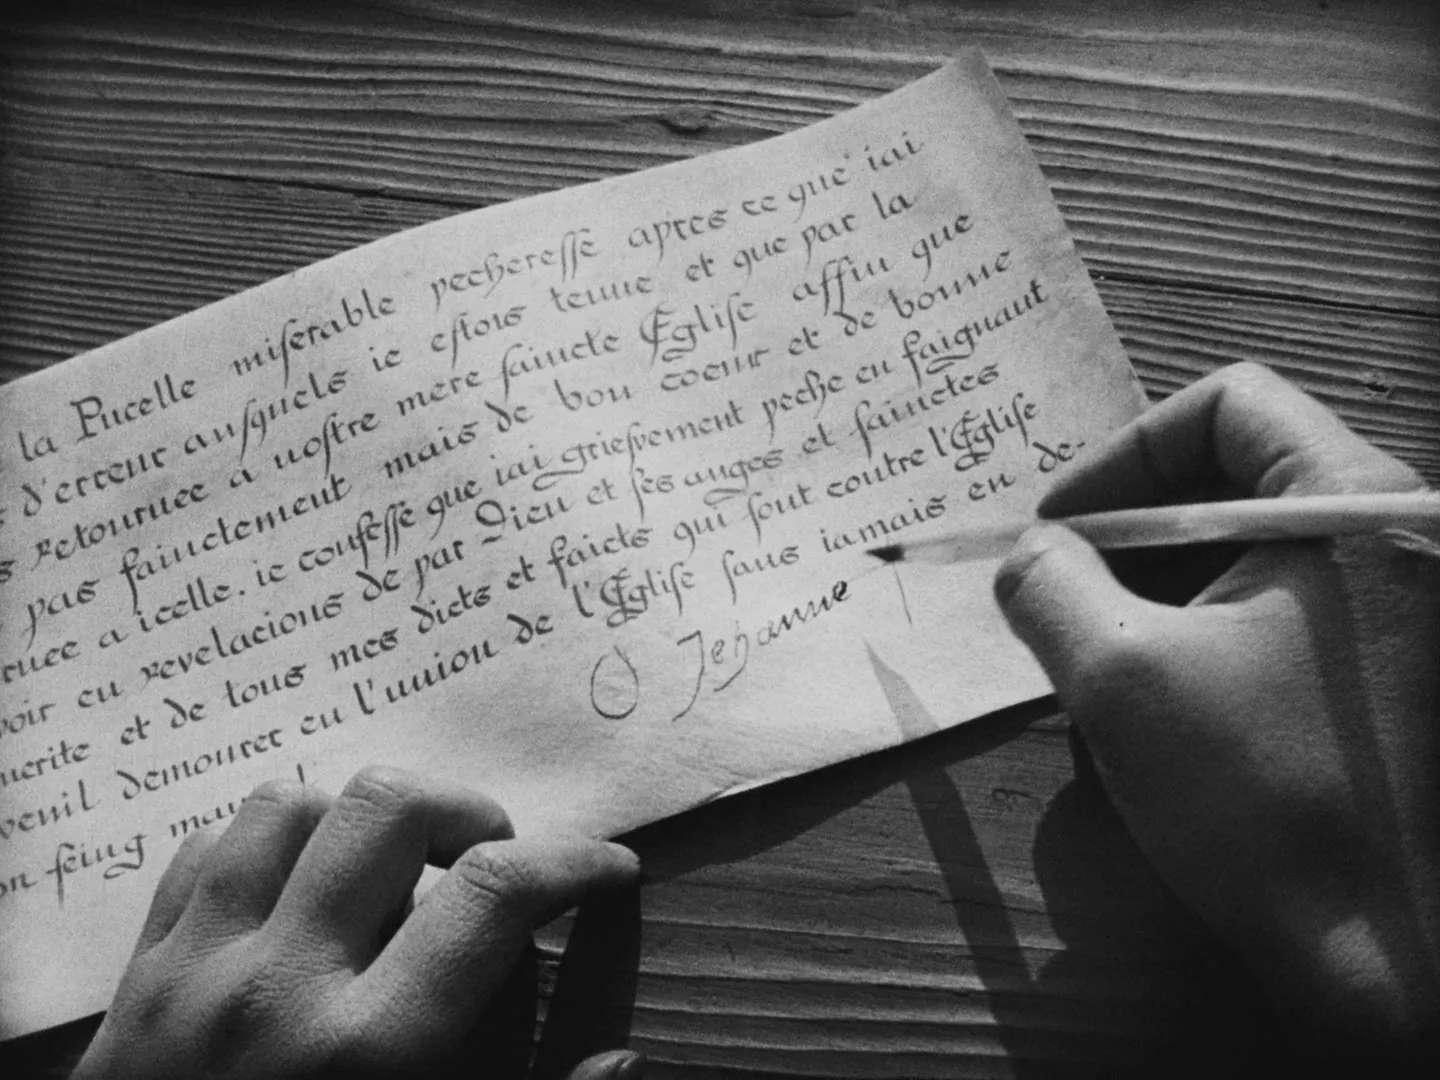 la Pucelle miserable pecheresse apres ce que iai
d'erreur ausquels ie estois tenue et que par la
s retournee a nostre mere saincte Eglise affin que
pas fainctement mais de bon coeur et de bonne
rnee a icelle. ie confesse que iai griefvement peche en faignant
voir eu revelacions de par Dieu et ses anges et sainctes
et de tous mes dicts et faicts qui sont contre l'Eglise
veuil demourer en l'union de l'Eglise sans iamais en de-
on seing
O Jehanne